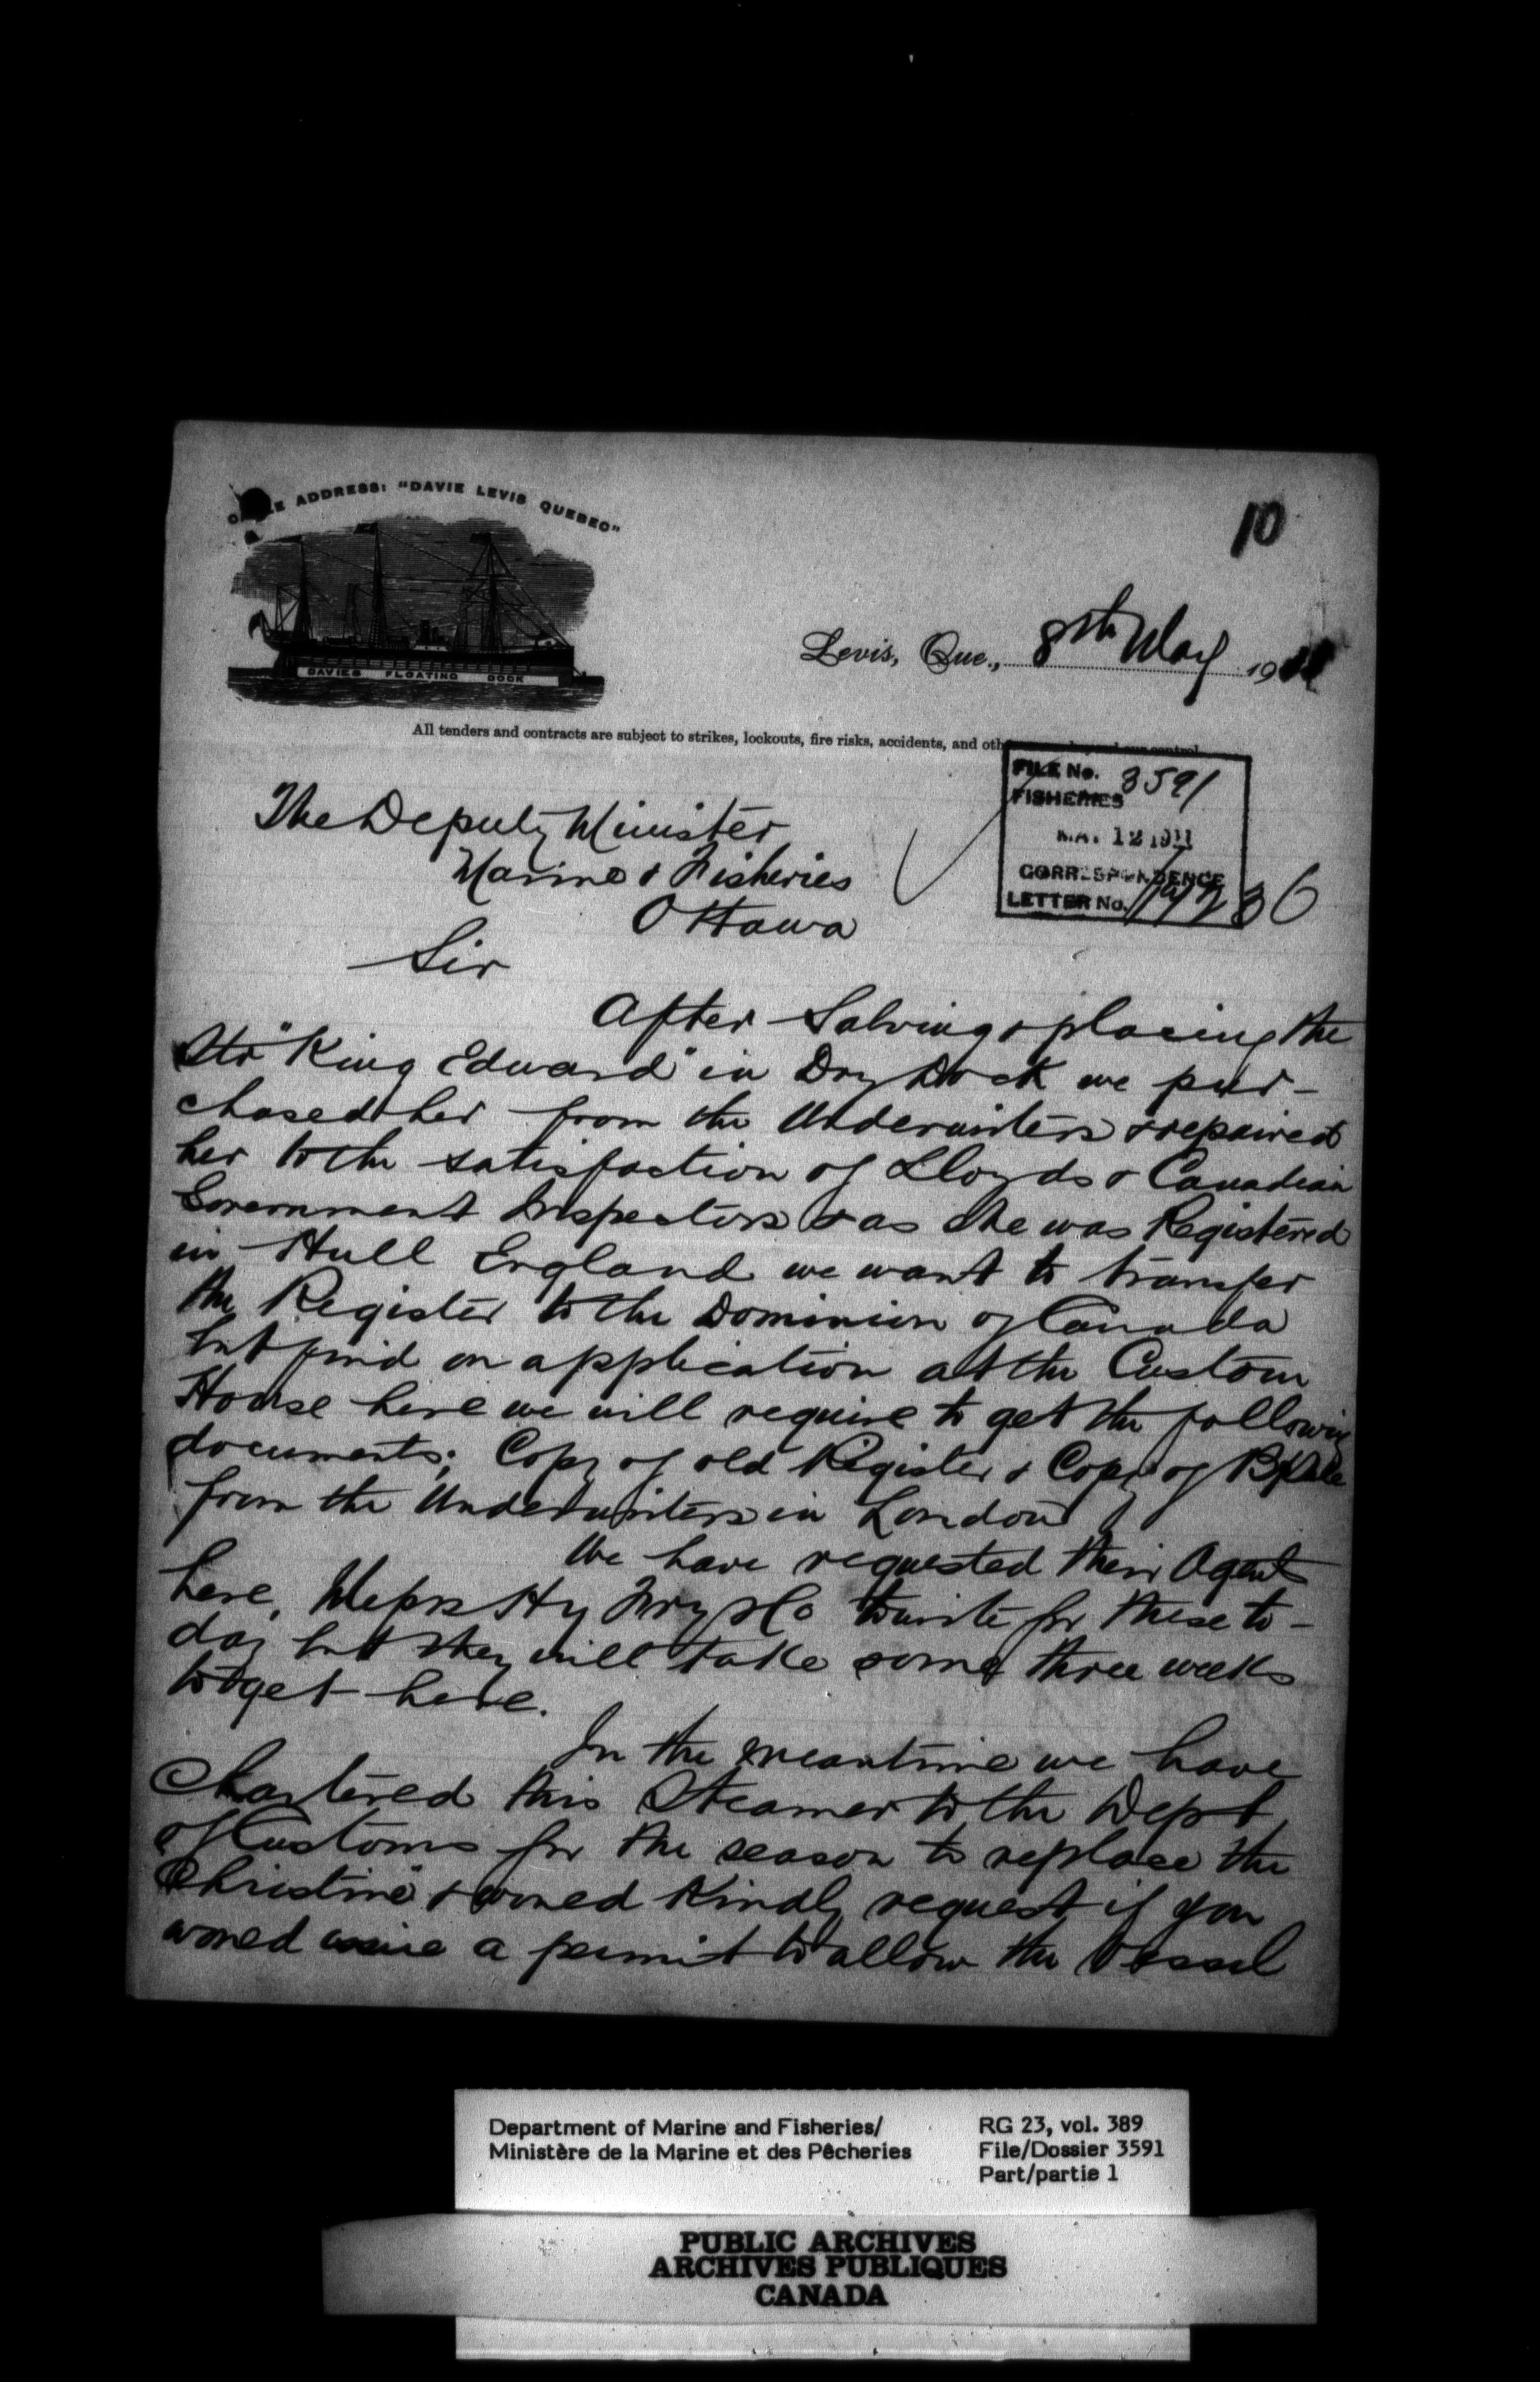 CABLE ADDRESS: "DAVIE LEVIS QUEBEC"
DAVIES FLOATING DOCK
10
Levis, Que., 8th May 1911
All tenders and contracts are subject to strikes, lockouts, fire risks, accidents, and
FILE No. 3591
FISHERIES
MAY 12 1911
CORRESPONDENCE
LETTER No.
The Deputy Minister
Marine & Fisheries
Ottawa
Sir
After Salving & placing the
Str "King Edward" in Dry Dock we pur-
chased her from the Underwriters & repaired
her to the satisfaction of Lloyds & Canadian
Government Inspectors & as she was Registered
in Hull England we want to transfer
the Register to the Dominion of Canada
but find on application at the Custom
House here we will require to get the following
documents; Copy of old Register & Copy of B/Sale
from the Underwriters in London
We have requested their Agents
here, Messrs Hy Fry & Co to write for these to-
day but they will take some three weeks
to get here.
In the meantime we have
Chartered this Steamer to the Dept
of Customs for the season to replace the
"Christine" & woued kindly request if you
woued issue a permit to allow the Vessel
Department of Marine and Fisheries/
Ministère de la Marine et des Pêcheries
RG 23, vol. 389
File/Dossier 3591
Part/partie 1
PUBLIC ARCHIVES
ARCHIVES PUBLIQUES
CANADA